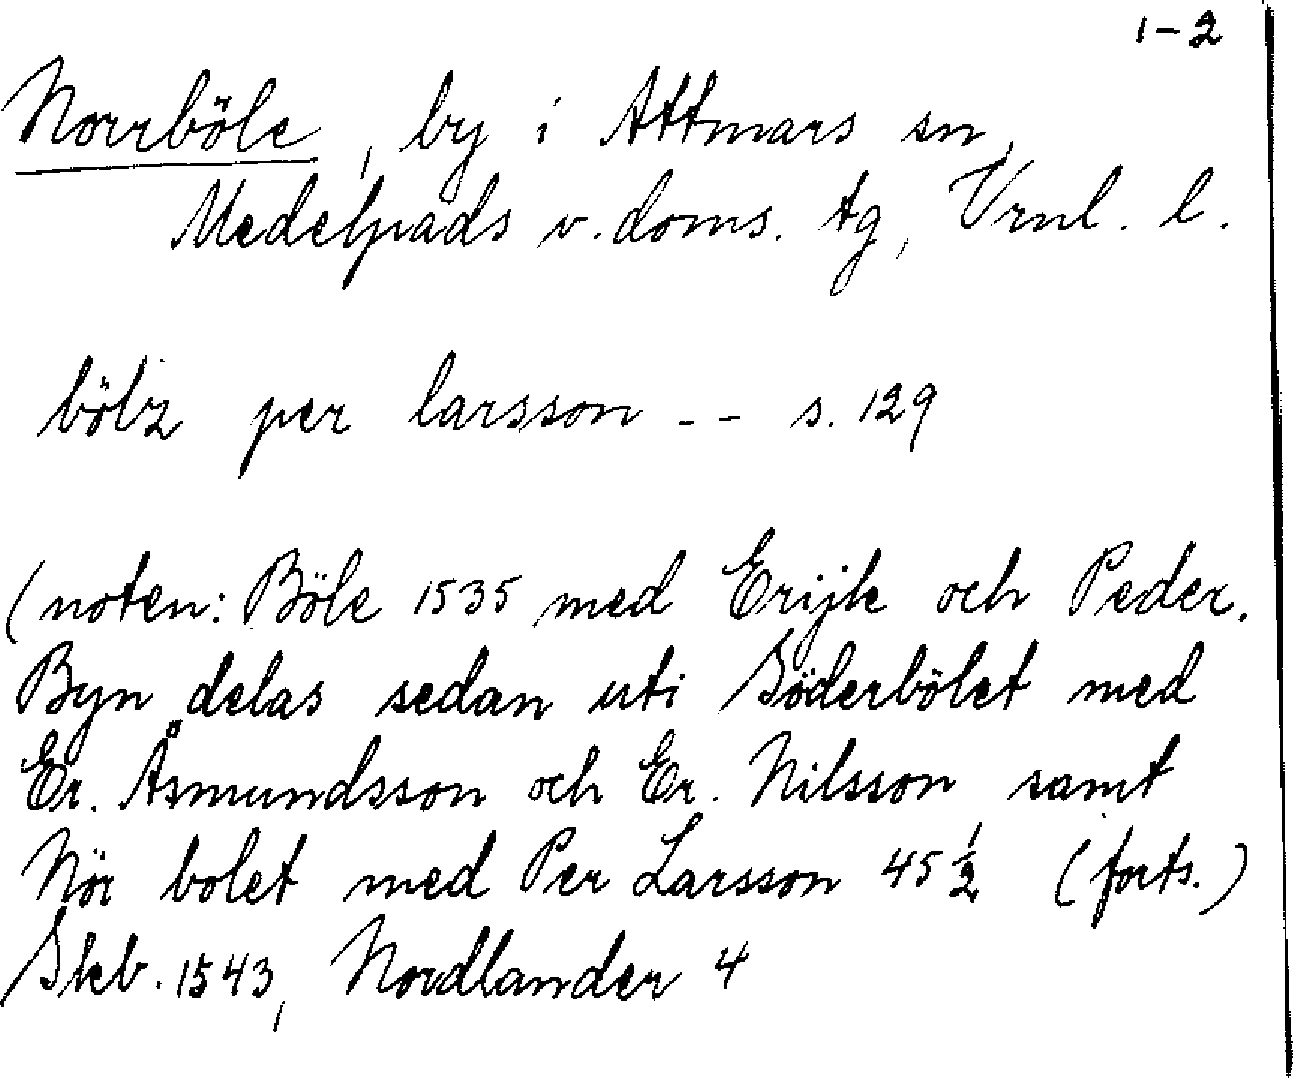 1-2
Norrböle, by i Attmars sn,
Medelpads v. doms. tg, Vrnl. l.
bölz per larsson -- s. 129
(noten: Böle 1535 med Erijk och Peder.
Byn delas sedan uti Söderbölet med
Er. Åsmundsson och Er. Nilsson samt
Nör bolet med Per Larsson 45 1/2 (forts.)
Skb. 1543, Nordlander 4